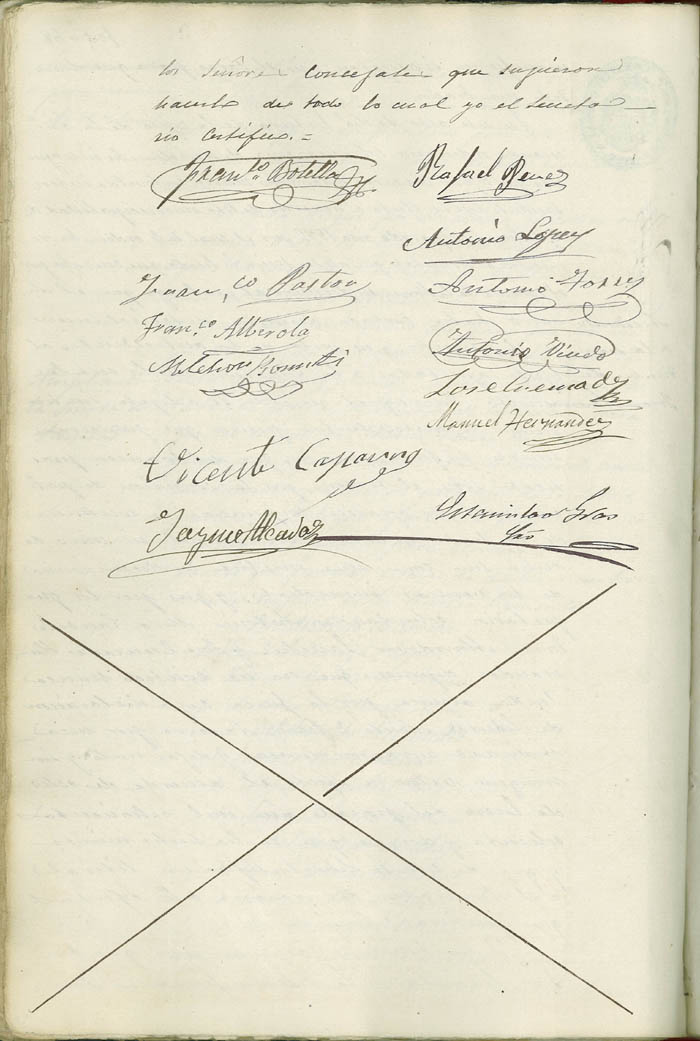 los Señores Concejales que supieron
hacerlo de todo lo cual yo el Secreta-
rio certifico.=
Fran.co Botella
Rafael Perez
Antonio Lopez
Fran.co Pastor
Antonio Torres
Fran.co Alberola
Antonio
Melchor
Jose
Manuel Hernandez
Vicente
Jayme Alcadaz
Estanislao Gras
Srio